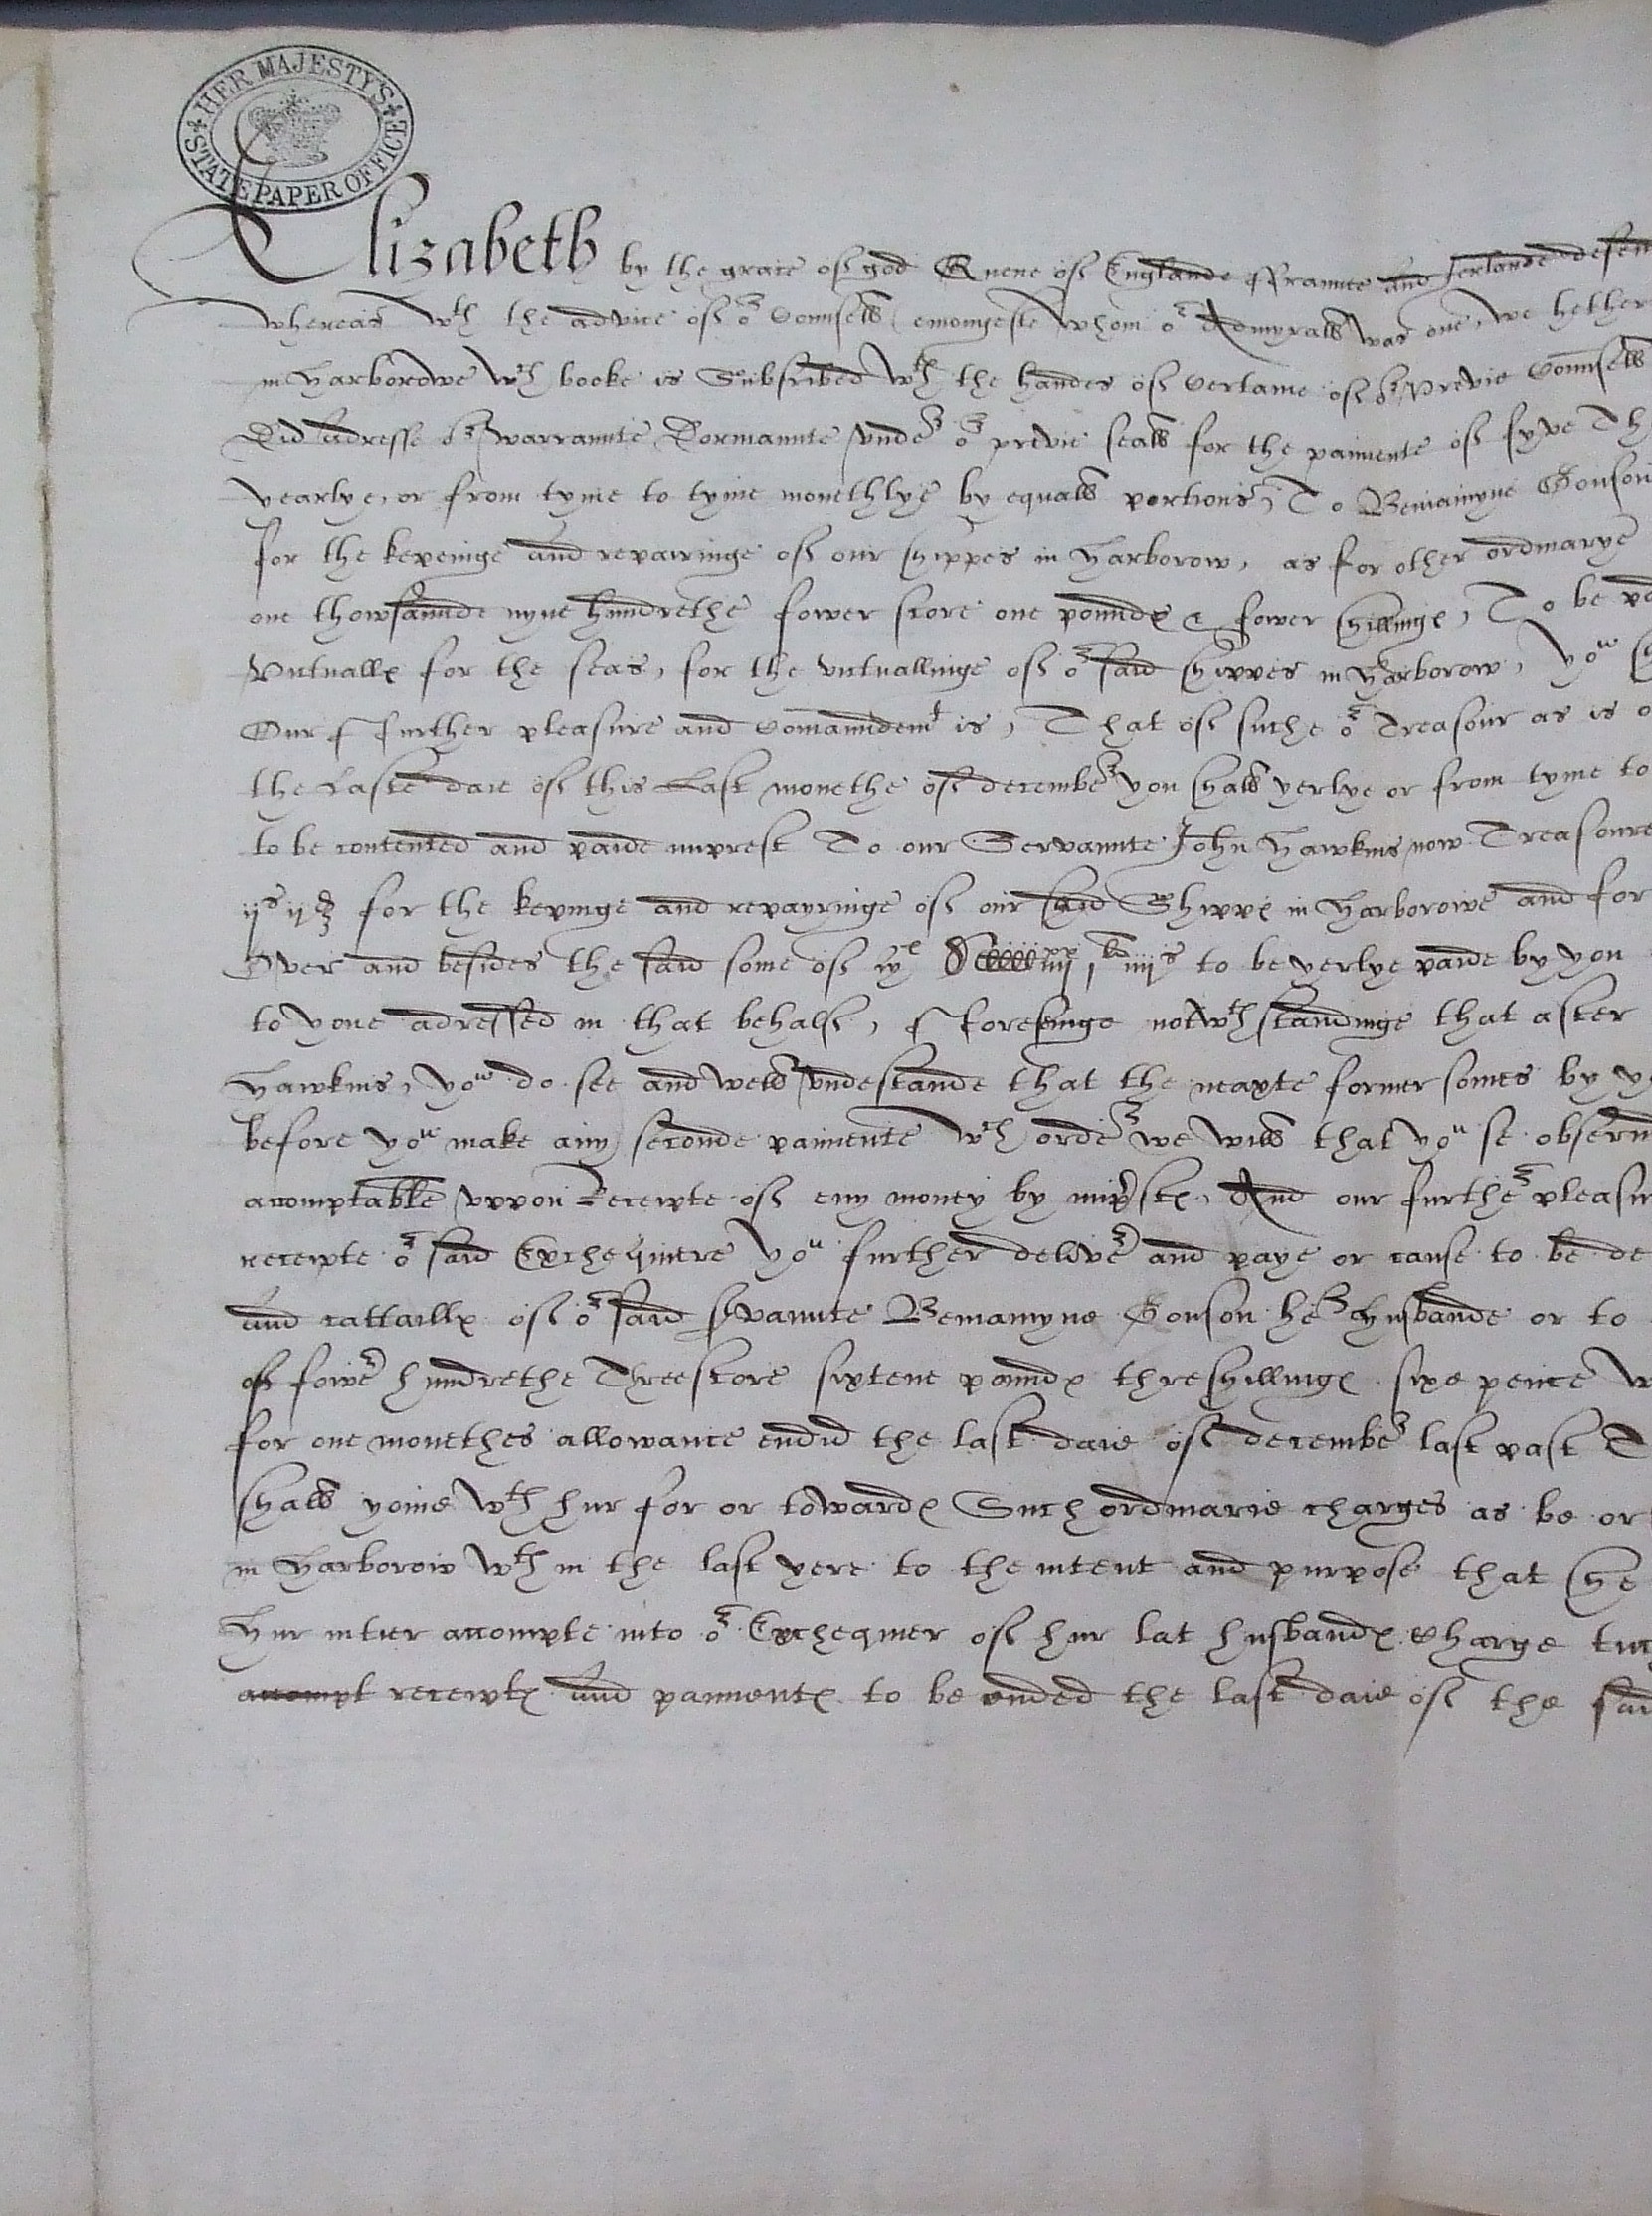 HER MAJESTY'S STATE PAPER OFFICE
Elizabeth by the grace of god Quene of Englande ffraunce and Ierlande defen
whereas wth the advice of or Counsell emongeste whom or Admyrall was one, we hether
in Harborowe wch booke is Subscribed wth the handes of certaine of or Previe Counsell
Did adresse or warraunte Dormaunte under or previe seall for the paimente of fyve Th
yearlye, or from tyme to tyme monethlye by equall portions, To Beniamyne Gonson
for the kepeinge and repairinge of our shippes in Harborow, as for other ordinarye
one thowsaunde nyne hundrethe fower score one poundes & fower shillinges, To be pd
Victualles for the seas, for the victuallinge of or said shippes in Harborow, you
Our further pleasure and Comaundemt is, That of suche or Treasour as is
the Laste daie of this Last monethe of december you shall yerlye or from tyme to
to be contented and paide imprest To our Servaunte John Hawkins now Treasoure
ijs ijd for the kepinge and repayringe of our said Shippes in Harborowe and for
Over and besides the said some of iiijs to be yerlye paide by you
to youe adressed in that behalf, notwthstandinge that after
Hawkins, you do see and well understande that the nexte former somes by
before you make any seconde paimente wch order we will that you se observ
accomptable uppon Receipte of eny money by And our further pleasur
receipte or said Exchequiere you further deliver and paye or cause to be de
and cattailles of or said servaunte Beniamyne Gonson her husbande or to
of fower hundrethe Threescore sixtene poundes threshillinges sixe pence
for one monethes allowance endid the last daie of december last past
shall yoine wth hur for or towardes Such ordinarie charges as be or
in Harborow wthin the last yere to the intent and purpose that she
Hur intier accompte into or Exchequier of hur lat husbandes Charge
accompt receiptes and paimentes to be ended the last daie of the